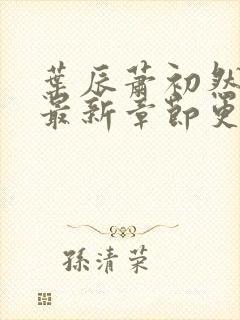 葉辰蕭初然
最新章節更
孫清荣